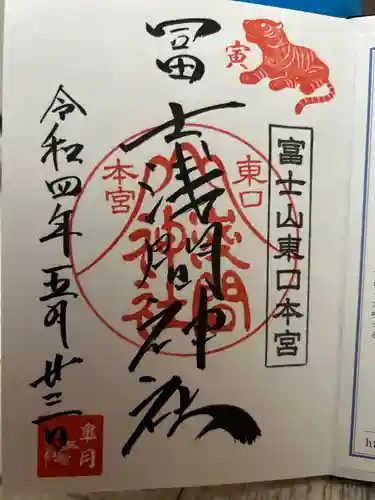 寅
富士山東口本宮
冨士浅間神社
東口
本宮
浅間
神社
令和四年五月廿三日
皐月